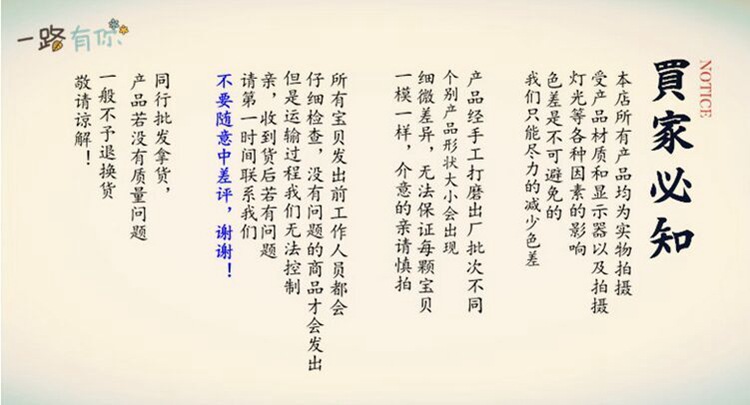 一路有你
NOTICE
買家必知
本店所有产品均为实物拍摄
受产品材质和显示器以及拍摄
灯光等各种因素的影响
色差是不可避免的
我们只能尽力的减少色差
产品经手工打磨出厂批次不同
个别产品形状大小会出现
细微差异，无法保证每颗宝贝
一模一样，介意的亲请慎拍
所有宝贝发出前工作人员都会
仔细检查，没有问题的商品才会发出
但是运输过程我们无法控制
亲，收到货后若有问题
请第一时间联系我们
不要随意中差评，谢谢！
同行批发拿货，
产品若没有质量问题
一般不予退换货
敬请谅解！